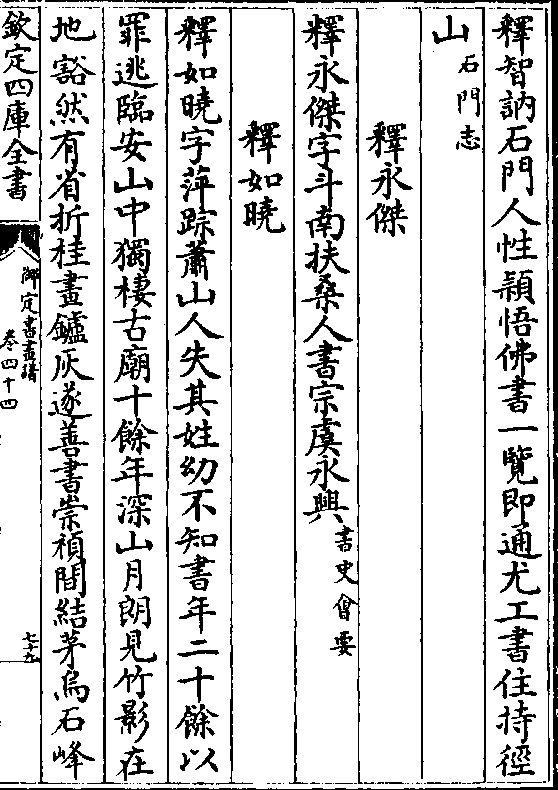 釋智訥石門人性穎悟佛書一覽即通尤工書住持徑
山石門志
釋永傑
釋永傑字斗南扶桑人書宗虞永興書史會要
釋如曉
釋如曉字萍踪蕭山人失其姓幼不知書年二十餘以
罪逃臨安山中獨棲古廟十餘年深山月朗見竹影在
地豁然有省折桂畫鑪灰遂善書崇禎間結茅烏石峰
欽定四庫全書
御定書畫譜
卷四十四
七十九